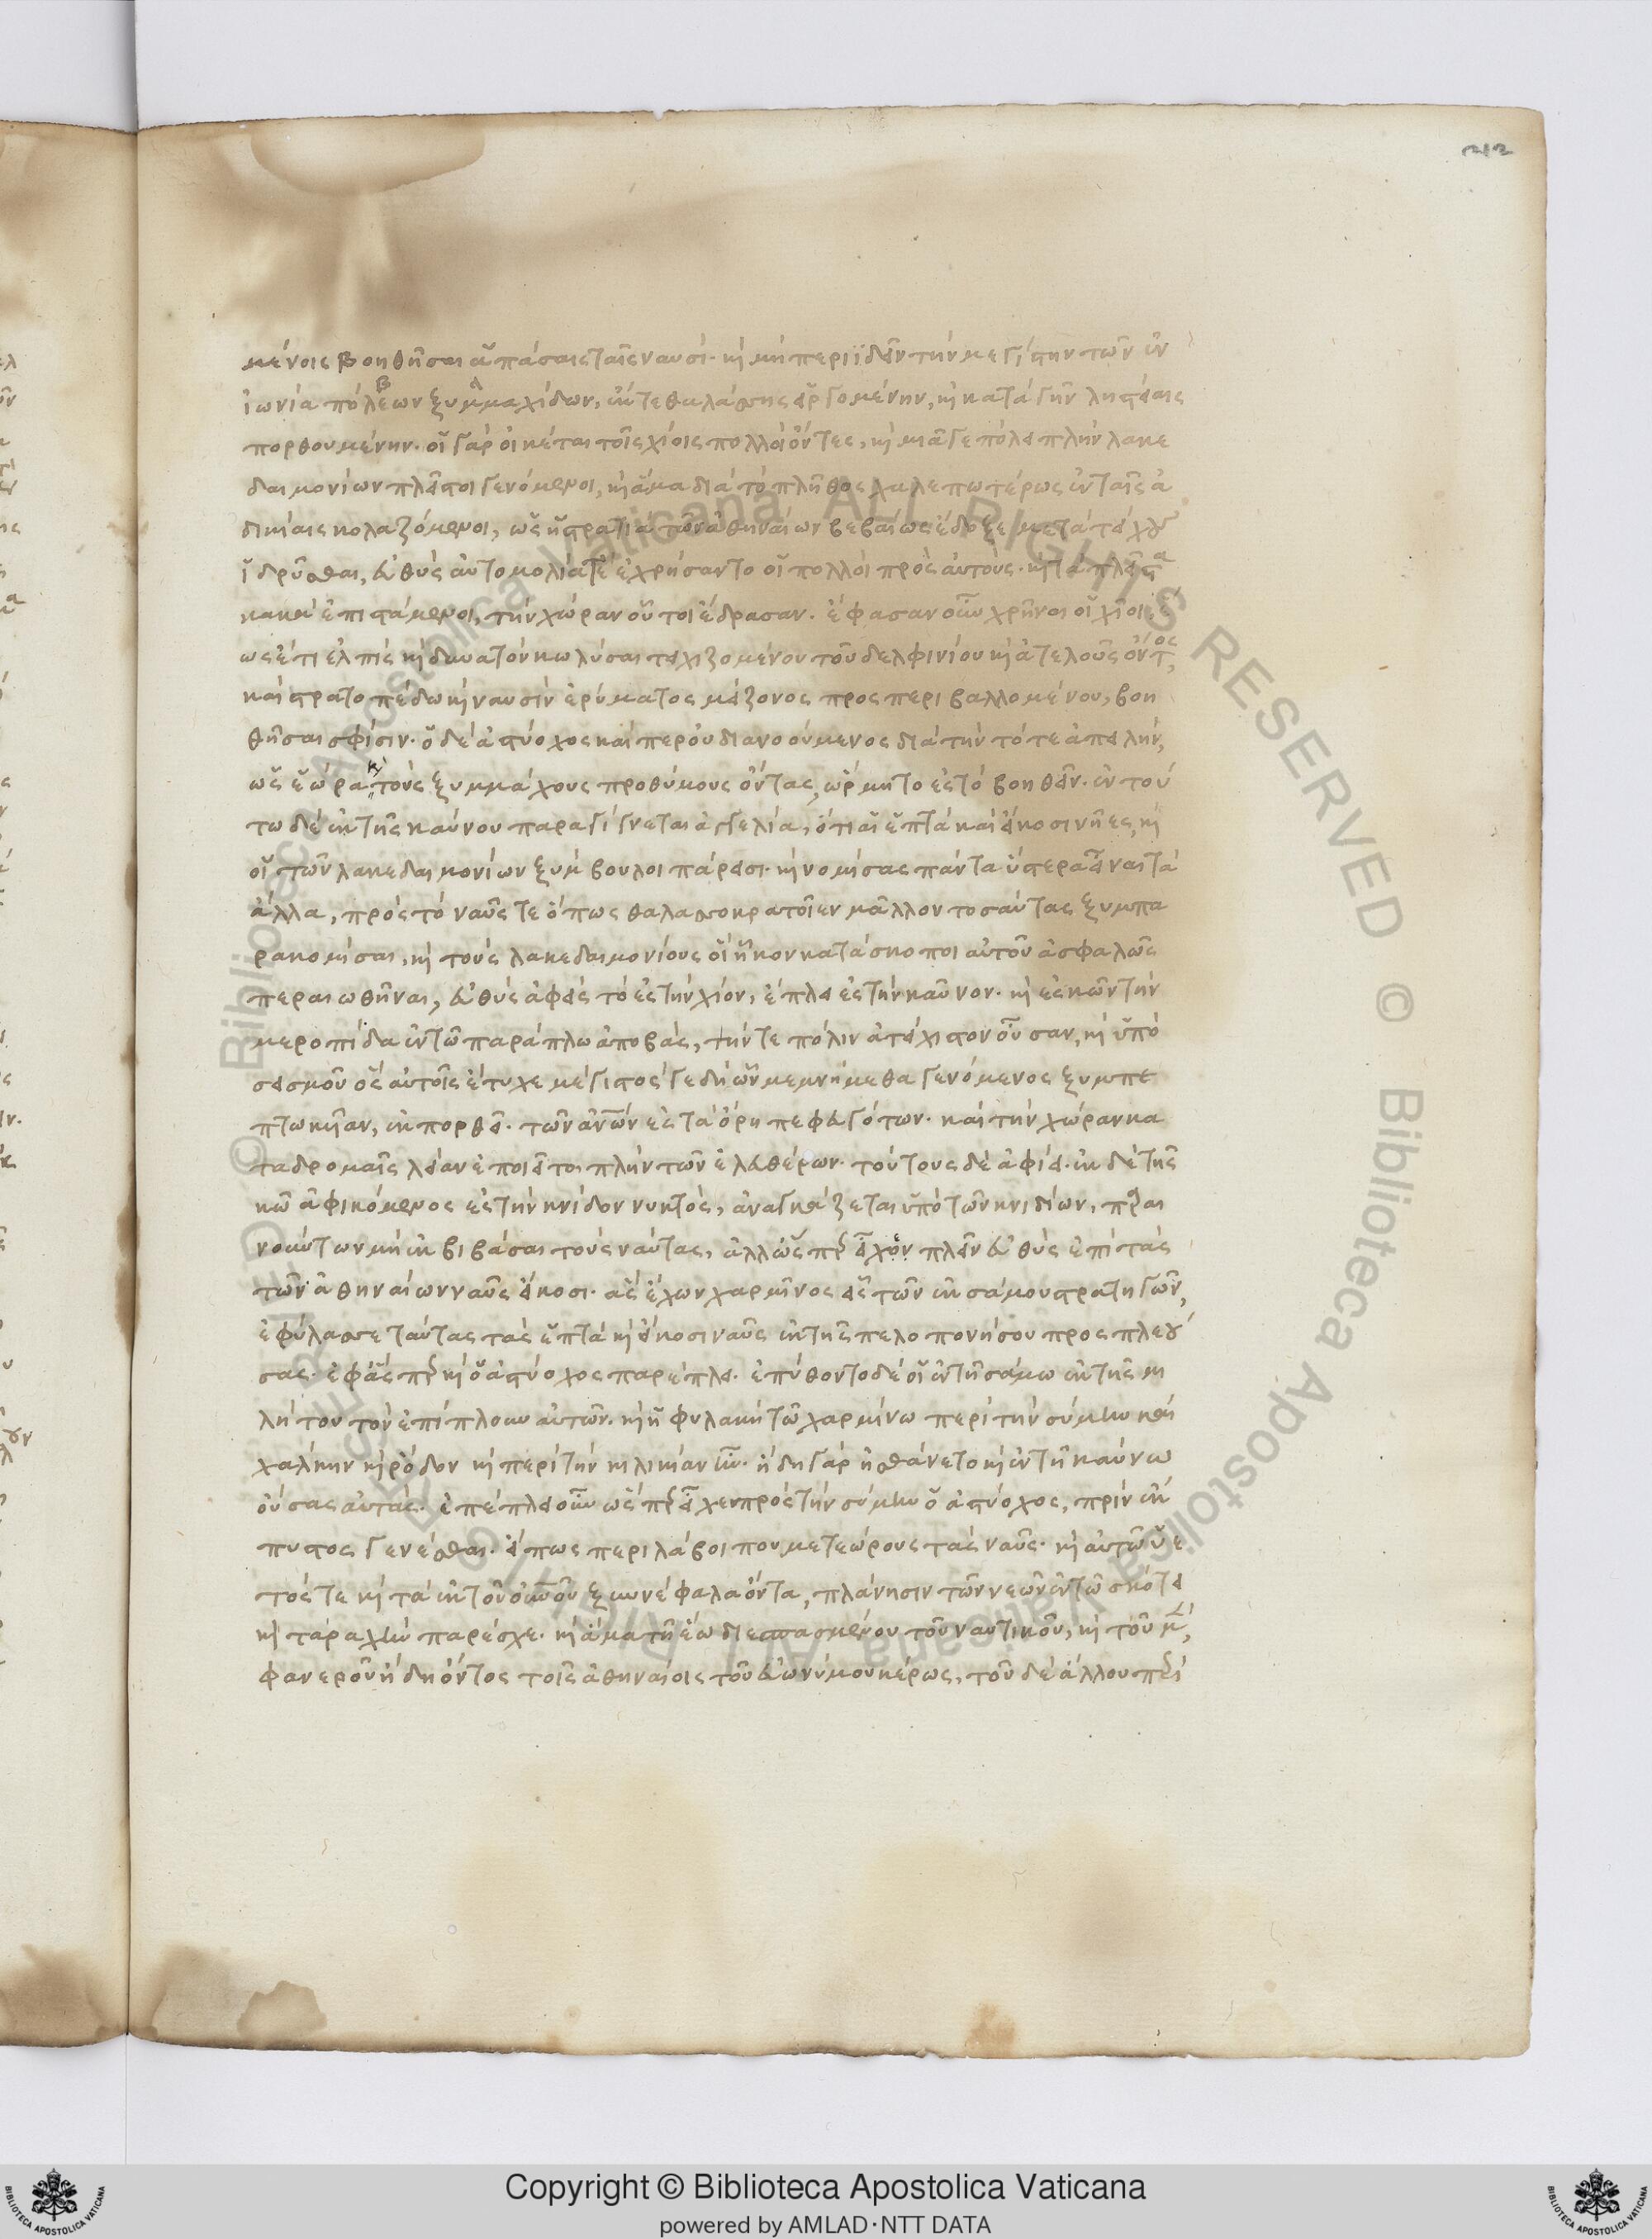 212
μένοις βοηθῆσαι ἁπάσαις ταῖς ναυσί· κ̀ μὴ περιϊδεῖν τὴν μεγίστην τῶν ἐν
ἰωνία πόλεων ξυμμαχίδων, ἔκ τε θαλάσσης εἰργομένην, κ̀ κατὰ γῆν ληστείαις
πορθουμένην· οἱ γὰρ οἰκέται τοῖς χίοις πολλοὶ ὄντες, κ̀ μιᾶ γε πόλει πλὴν λακε
δαιμονίων πλεῖστοι γενόμενοι, κ̀ ἅμα διὰ τὸ πλῆθος χαλεπωτέρως ἐν ταῖς ἀ
δικίαις κολαζόμενοι, ὡς ἡ στρατιὰ τῶν ἀθηναίων βεβαίως ἔδοξε μετὰ τείχους
ἱδρῦσθαι, εὐθὺς αὐτομολία τὲ ἐχρήσαντο οἱ πολλοὶ πρὸς αὐτούς· κ̀ τὰ πλεῖστα
κακὰ ἐπιστάμενοι, τὴν χώραν οὗτοι ἔδρασαν· ἔφασαν οὖν χρῆναι οἱ χῖοι, ἕ
ως ἔτι ἐλπὶς κ̀ δυνατὸν κωλύσαι τειχιζομένου τοῦ δελφινίου κ̀ ἀτελοῦς ὄντος,
καὶ στρατοπέδω κ̀ ναυσὶν ἐρύματος μείζονος προσπεριβαλλομένου, βοη
θῆσαι σφίσιν· ὁ δὲ ἀστύοχος καίπερ οὐ διανοούμενος διὰ τὴν τότε ἀπειλήν,
ὡς ἑώρα κ̀ τοὺς ξυμμάχους προθύμους ὄντας, ὥρμητο ἐς τὸ βοηθεῖν· ἐν τού
τω δὲ ἐκ τῆς καύνου παραγίγνεται ἀγγελία, ὅτι αἱ ἑπτὰ καὶ εἴκοσι νῆες, κ̀
οἱ τῶν λακεδαιμονίων ξύμβουλοι πάρεισι· κ̀ νομίσας πάντα ὕστερα εἶναι τὰ
ἄλλα, πρὸς τὸ ναῦς τε ὅπως θαλασσοκρατοῖεν μᾶλλον τοσαύτας ξυμπα
ρακομίσαι, κ̀ τοὺς λακεδαιμονίους οἳ ἧκον κατάσκοποι αὐτοῦ ἀσφαλῶς
περαιωθῆναι, εὐθὺς ἀφεὶς τὸ ἐς τὴν χίον, ἔπλει ἐς τὴν καῦνον· κ̀ ἐς κῶν τὴν
μεροπίδα ἐν τῶ παράπλω ἀποβὰς, τήν τε πόλιν ἀτείχιστον οὖσαν, κ̀ ὑπὸ
σεισμοῦ ὃς αὐτοῖς ἔτυχε μέγιστός γε δὴ ὧν μεμνήμεθα γενόμενος ξυμπε
πτωκυῖαν, ἐκπορθεῖ· τῶν ἀνῶν ἐς τὰ ὄρη πεφευγότων· καὶ τὴν χώραν κα
ταδρομαῖς λείαν ἐποιεῖτο πλὴν τῶν ἐλευθέρων· τούτους δὲ ἀφίει· ἐκ δὲ τῆς
κῶ ἀφικόμενος ἐς τὴν κνίδον νυκτὸς, ἀναγκάζεται ὑπὸ τῶν κνιδίων, παραι
νούντων μὴ ἐκβιβάσαι τοὺς ναύτας, ἀλλ' ὥσπερ εἶχον πλεῖν εὐθὺς ἐπὶ τὰς
τῶν ἀθηναίων ναῦς εἴκοσι· ἃς ἔχων χαρμῖνος εἷς τῶν ἐκ σάμου στρατηγῶν,
ἐφύλασσε ταύτας τὰς ἑπτὰ κ̀ εἴκοσι ναῦς ἐκ τῆς πελοπονήσου προσπλεού
σας· ἐφ' ἅσπερ κ̀ ὁ ἀστύοχος παρέπλει· ἐπύθοντο δὲ οἱ ἐν τῆ σάμω ἐκ τῆς μι
λήτου τὸν ἐπίπλουν αὐτῶν· κ̀ ἡ φυλακὴ τῶ χαρμίνω περὶ τὴν σύμην καὶ
χάλκην κ̀ ῥόδον κ̀ περὶ τὴν κιλικίαν ἦν· ἤδη γὰρ ἠσθάνετο κ̀ ἐν τῆ καύνω
οὔσας αὐτάς· ἐπέπλει οὖν ὥσπερ εἶχεν πρὸς τὴν σύμην ὁ ἀστύοχος, πρὶν ἔκ
πυστος γενέσθαι· εἴπως περιλάβοι που μετεώρους τὰς ναῦς· κ̀ αὐτῶ ὑε
τός τε κ̀ τὰ ἐκ τοῦ οὐνοῦ ξυννέφαλα ὄντα, πλάνησιν τῶν νεῶν ἐν τῶ σκότει
κ̀ ταραχὴν παρέσχε· κ̀ ἅμα τῆ ἕω διεσπασμένου τοῦ ναυτικοῦ, κ̀ τοῦ μὲν,
φανεροῦ ἤδη ὄντος τοῖς ἀθηναίοις τοῦ εὐωνύμου κέρως, τοῦ δὲ ἄλλου περὶ
Copyright © Biblioteca Apostolica Vaticana
powered by AMLAD·NTT DATA